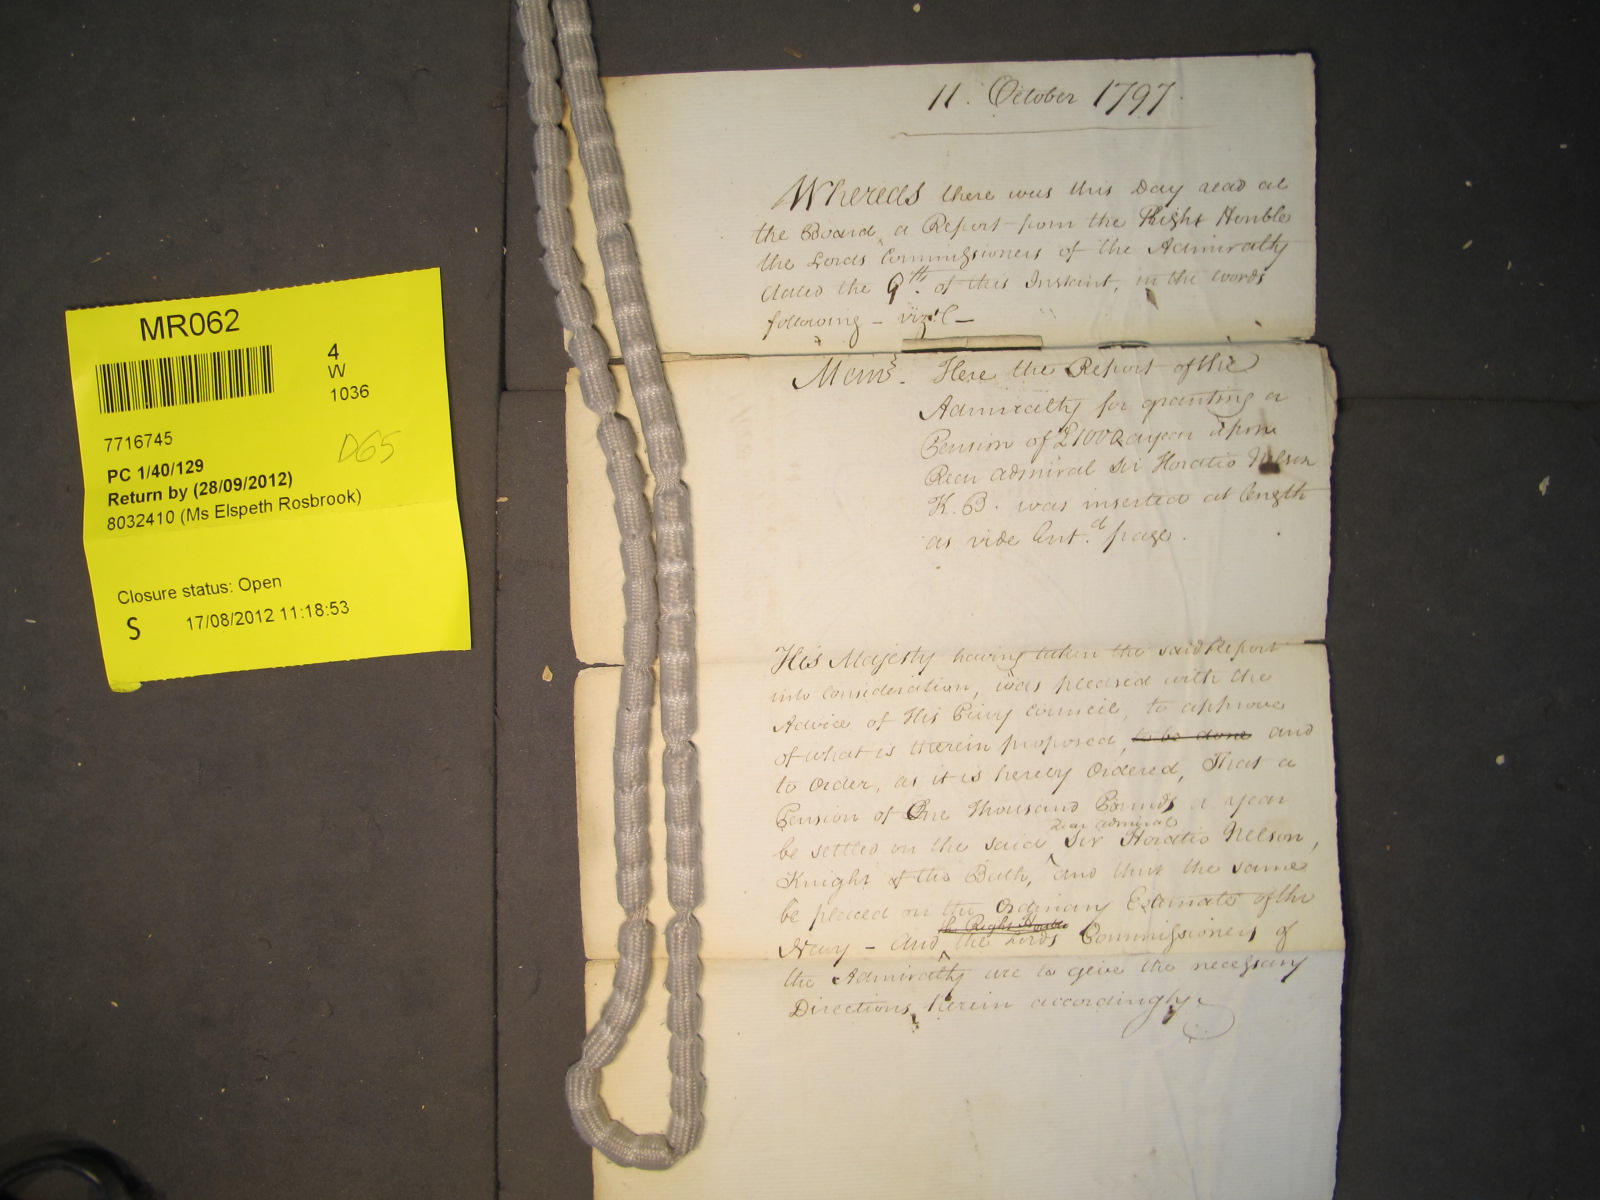 MR062
4
W
1036
7716745
D65
PC 1/40/129
Return by (28/09/2012)
8032410 (Ms Elspeth Rosbrook)
Closure status: Open
S 17/08/2012 11:18:53
11. October 1797.
Whereas there was this Day read at
the Board, a Report from the Right Honble
the Lords Commissioners of the Admiralty
dated the 9th. of this Instant, in the words
following – vizt. –
Here the Report of the
Admiralty for granting a
Pension of £1000 a year upon
Rear Admiral Sir Horatio Nelson
K. B. was inserted at length
as vide Ent.d page.
His Majesty having taken the said Report
into Consideration, was pleased with the
Advice of His Privy Council, to approve
of what is therein proposed, to be done and
to Order, as it is hereby Ordered, That a
Pension of One Thousand Pounds a year
Rear Admiral
be settled on the said Sir Horatio Nelson,
Knight of the Bath, and that the same
be placed on the Ordinary Estimate of the
the Right Honble
Navy – And the Lords Commissioners of
the Admiralty are to give the necessary
Directions herein accordingly.